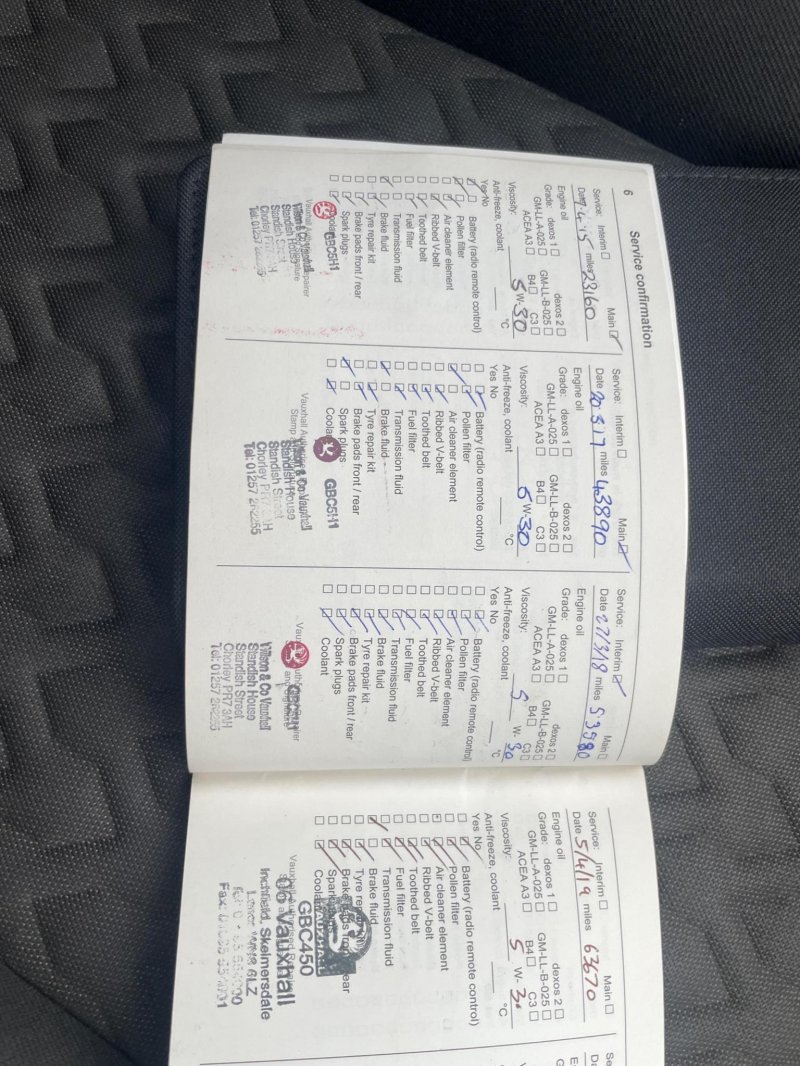 6
Service confirmation
Service: Interim ☐ Main ☑
Date 7.4.15 miles 23160
Engine oil
Grade: dexos 1 ☐ dexos 2 ☐
GM-LL-A-025 ☐ GM-LL-B-025 ☐
ACEA A3 ☐ B4 ☐ C3 ☐
Viscosity: 5 W- 30
Anti-freeze, coolant °C
Yes No
Battery (radio remote control)
Pollen filter
Air cleaner element
Ribbed V-belt
Toothed belt
Fuel filter
Transmission fluid
Brake fluid
Tyre repair kit
Brake pads front / rear
Spark plugs
Coolant
GBC5H1
Vauxhall Authorised Repairer
Wilson & Co Vauxhall
Standish House
Standish Street
Chorley PR7 3AH
Tel: 01257
Service: Interim ☐ Main ☑
Date 20.3.17 miles 43890
Engine oil
Grade: dexos 1 ☐ dexos 2 ☐
GM-LL-A-025 ☐ GM-LL-B-025 ☐
ACEA A3 ☐ B4 ☐ C3 ☐
Viscosity: 5 W- 30
Anti-freeze, coolant °C
Yes No
Battery (radio remote control)
Pollen filter
Air cleaner element
Ribbed V-belt
Toothed belt
Fuel filter
Transmission fluid
Brake fluid
Tyre repair kit
Brake pads front / rear
Spark plugs
Coolant
GBC5H1
Vauxhall Authorised
Stamp
Wilson & Co Vauxhall
Standish House
Standish Street
Chorley PR7 3AH
Tel: 01257
Service: Interim ☑ Main ☐
Date 27/3/18 miles 53980
Engine oil
Grade: dexos 1 ☐ dexos 2 ☐
GM-LL-A-025 ☐ GM-LL-B-025 ☐
ACEA A3 ☐ B4 ☐ C3 ☐
Viscosity: 5 W- 30
Anti-freeze, coolant °C
Yes No
Battery (radio remote control)
Pollen filter
Air cleaner element
Ribbed V-belt
Toothed belt
Fuel filter
Transmission fluid
Brake fluid
Tyre repair kit
Brake pads front / rear
Spark plugs
Coolant
Wilson & Co Vauxhall
Standish House
Standish Street
Chorley PR7 3AH
Tel: 01257
Service: Interim ☐ Main ☐
Date 5/4/19 miles 63670
Engine oil
Grade: dexos 1 ☐ dexos 2 ☐
GM-LL-A-025 ☐ GM-LL-B-025 ☐
ACEA A3 ☐ B4 ☐ C3 ☐
Viscosity: 5 W- 30
Anti-freeze, coolant °C
Yes No
Battery (radio remote control)
Pollen filter
Air cleaner element
Ribbed V-belt
Toothed belt
Fuel filter
Transmission fluid
Brake fluid
Tyre repair kit
Brake pads front / rear
Spark plugs
Coolant
VAUXHALL
GBC450
Vauxhall Authorised
Vauxhall
Skelmersdale
6LZ
Fax: